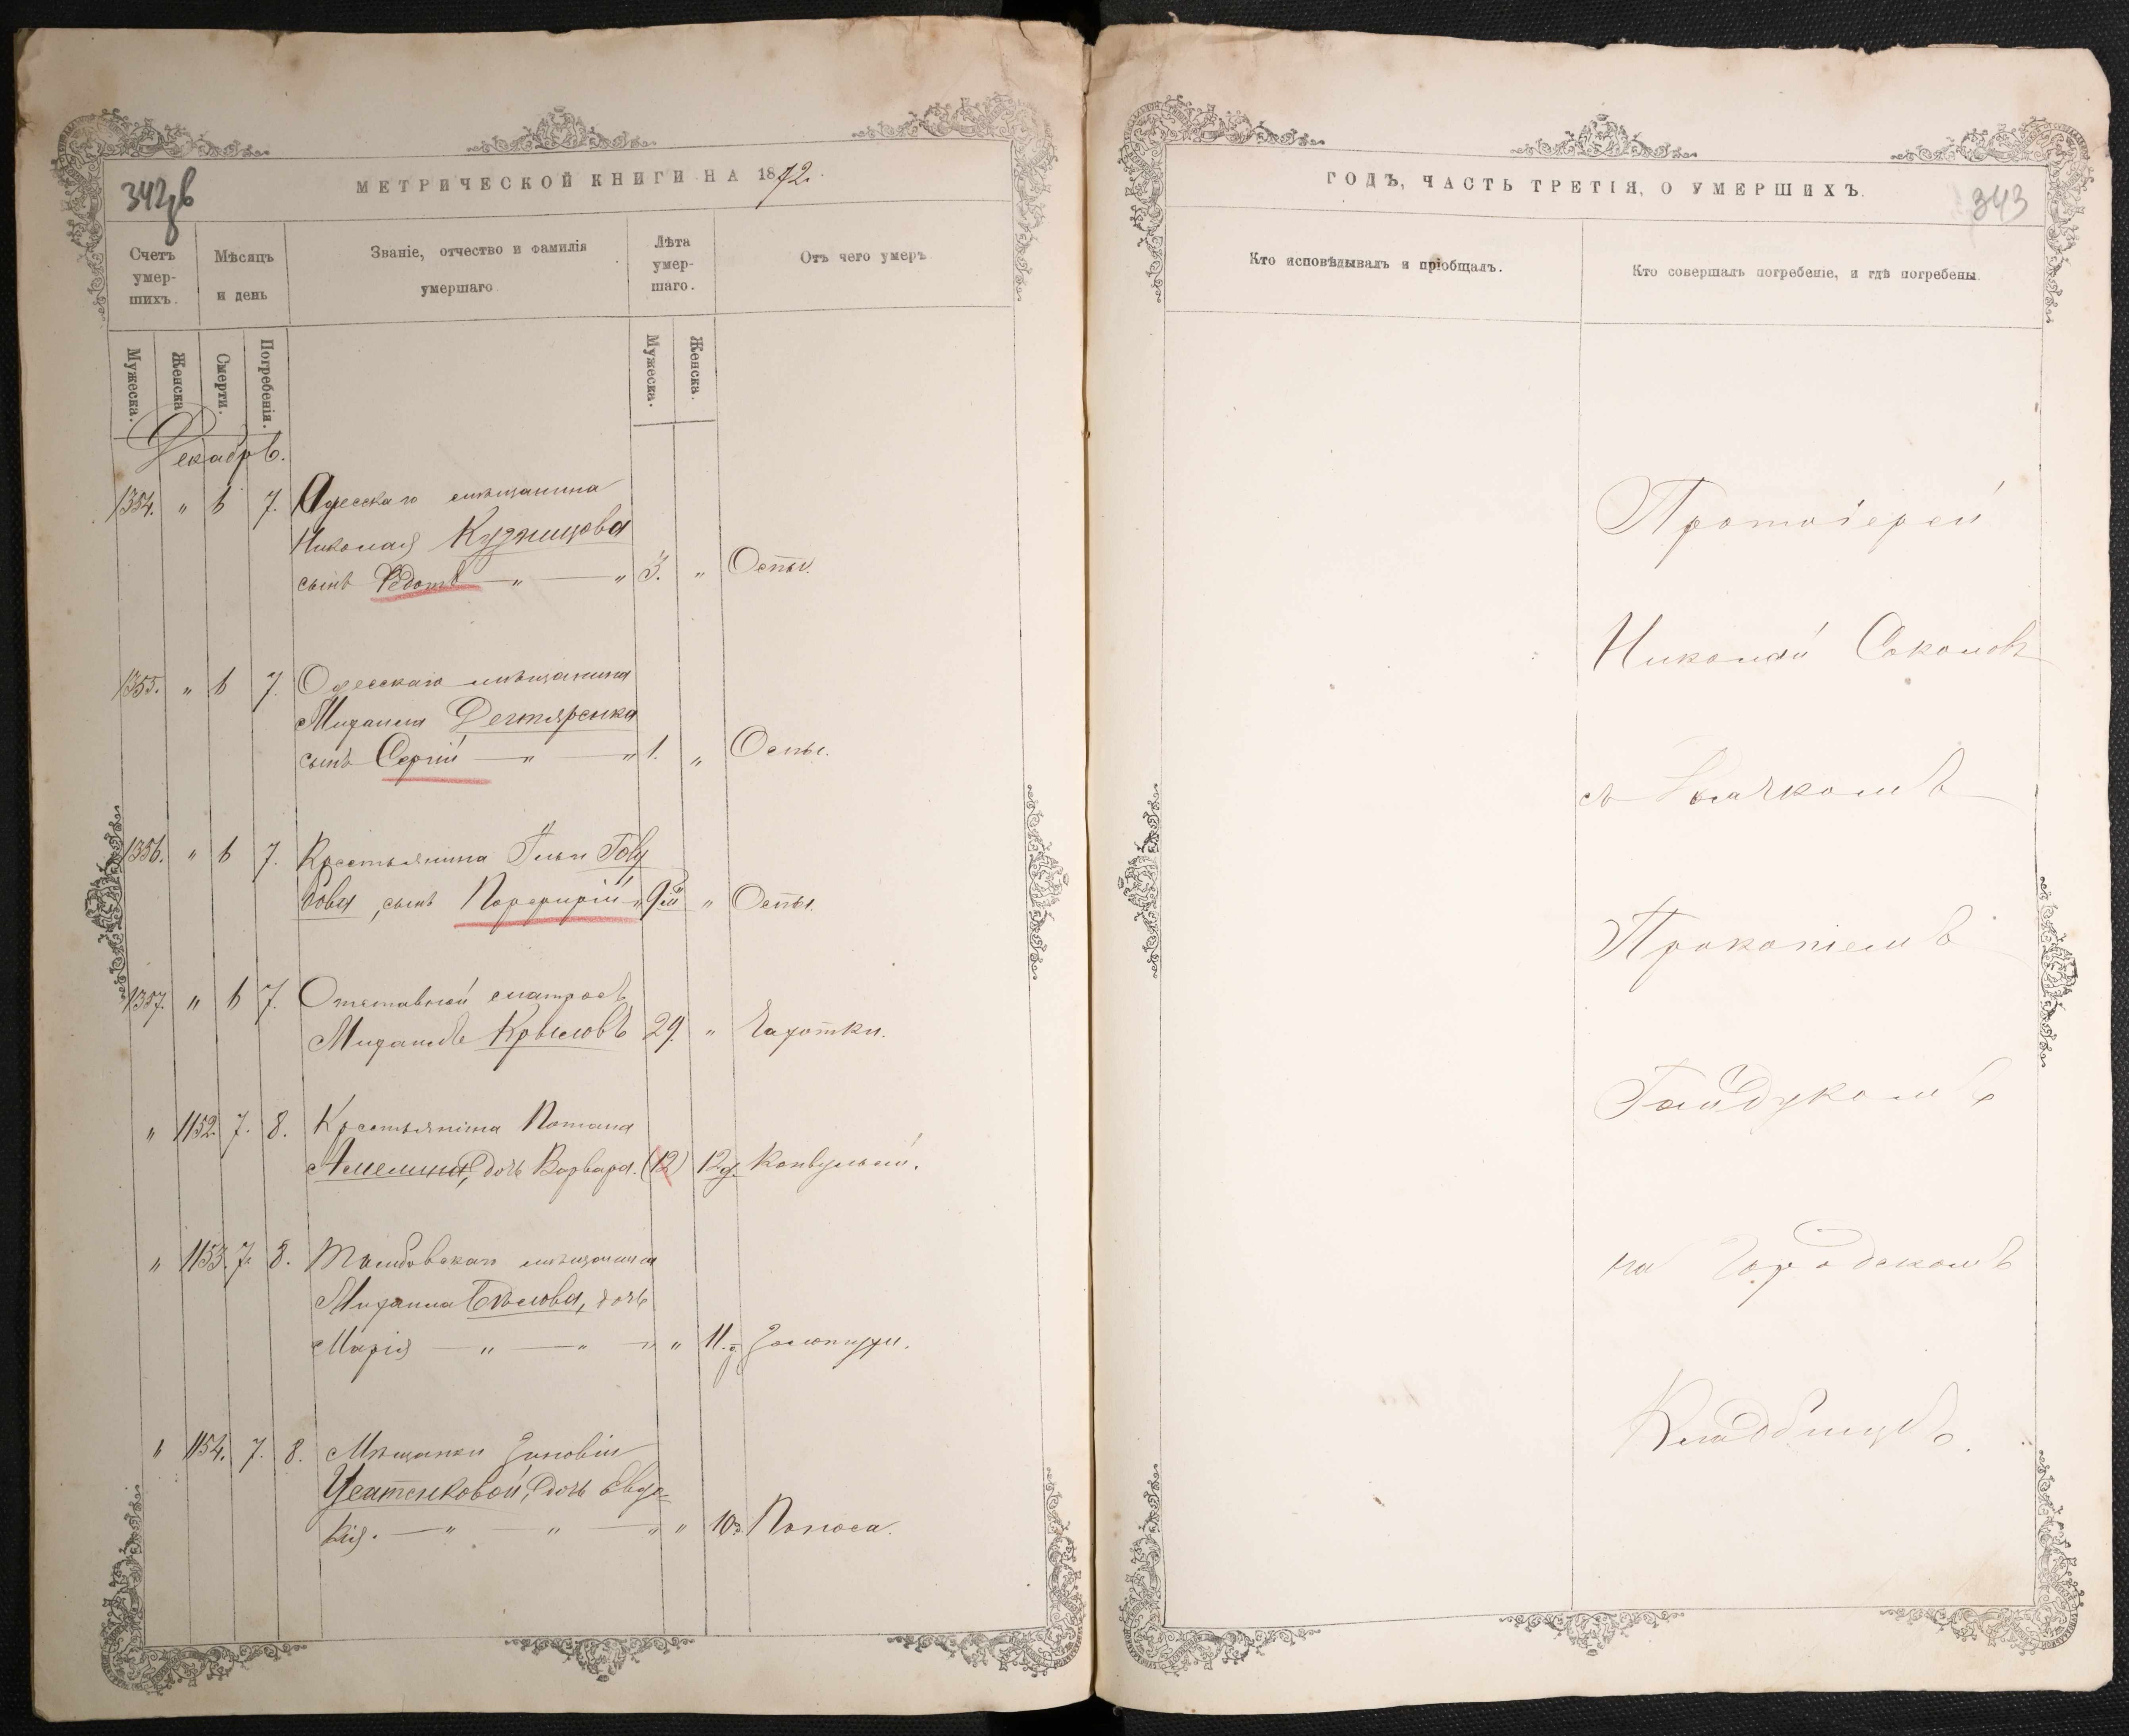 342об
МЕТРИЧЕСКОЙ КНИГИ НА 1872.
Счетъ умер-шихъ.
Мѣсяцъ и день
Званіе, отчество и фамилія умершаго
Лѣта умер-шаго.
Отъ чего умеръ
Мужеска.
Женска
Смерти.
Погребенія.
Мужеска.
Женска.
Декабрь.
1354. " 6 7. Одесскаго мѣщанина
Николая Кузнецова
сынъ Ѳедотъ — " — " 3. " Оспы.
1355. " 6 7. Одесскаго мѣщанина
Михаила Дегтяренка
сынъ Сергій — " — " 1. " Оспы.
1356. " 6 7. Крестьянина Ильи Голу
бова, сынъ Порфирій " 9м " Оспы
1357. " 6 7. Отставной матросъ
Михаилъ Крыловъ 29. " Чахотки.
" 1152. 7. 8. Крестьянина Потапа
Амелина, дочь Варвара. (12) 12д. Конвульсій.
" 1153. 7. 8. Тамбовскаго мѣщанина
Михаила Бѣлова, дочь
Марія — " — " — " " 11. Золотухи.
" 1154. 7. 8. Мѣщанки Зиновіи
Усатенковой, дочь Евдо-
кія. — " — " — " " 10 Поноса.
ГОДЪ, ЧАСТЬ ТРЕТІЯ, О УМЕРШИХЪ.
343
Кто исповѣдывалъ и пріобщалъ.
Кто совершалъ погребеніе, и гдѣ погребены.
Протоіерей
Николай Соколовъ
съ Дьячкомъ
Прокопіемъ
Гайдукомъ
на Городскомъ
Кладбищѣ.